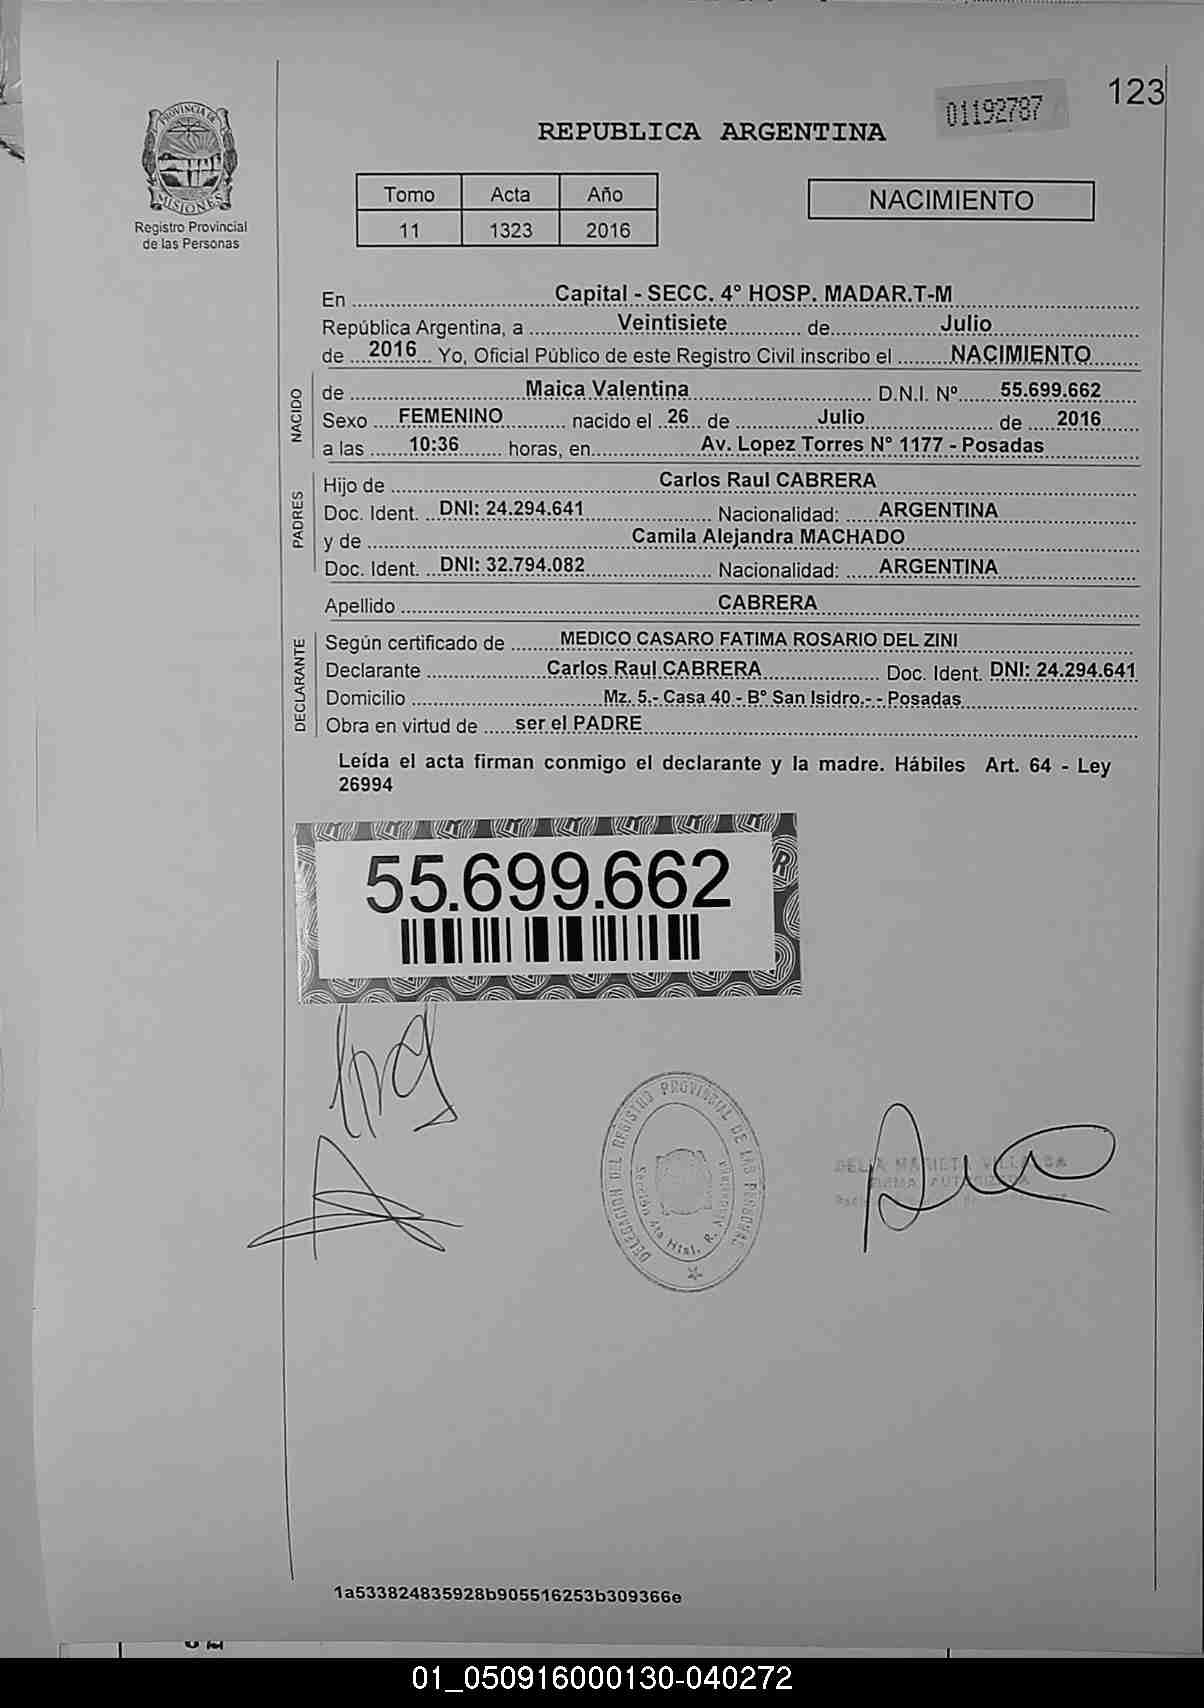 123
01192787
REPUBLICA ARGENTINA
PROVINCIA DE
MISIONES
Registro Provincial
de las Personas
Tomo Acta Año
11 1323 2016
NACIMIENTO
En Capital - SECC. 4° HOSP. MADAR.T-M
República Argentina, a Veintisiete de Julio
de 2016 Yo, Oficial Público de este Registro Civil inscribo el NACIMIENTO
NACIDO
de Maica Valentina D.N.I. Nº 55.699.662
Sexo FEMENINO nacido el 26 de Julio de 2016
a las 10:36 horas, en Av. Lopez Torres N° 1177 - Posadas
PADRES
Hijo de Carlos Raul CABRERA
Doc. Ident. DNI: 24.294.641 Nacionalidad: ARGENTINA
y de Camila Alejandra MACHADO
Doc. Ident. DNI: 32.794.082 Nacionalidad: ARGENTINA
Apellido CABRERA
DECLARANTE
Según certificado de MEDICO CASARO FATIMA ROSARIO DEL ZINI
Declarante Carlos Raul CABRERA Doc. Ident. DNI: 24.294.641
Domicilio Mz. 5.- Casa 40 - B° San Isidro.- - Posadas
Obra en virtud de ser el PADRE
Leída el acta firman conmigo el declarante y la madre. Hábiles Art. 64 - Ley
26994
55.699.662
DELEGACION DEL REGISTRO PROVINCIAL DE LAS PERSONAS
Sección 4ta Htal. R. Madariaga
1a533824835928b905516253b309366e
01_050916000130-040272